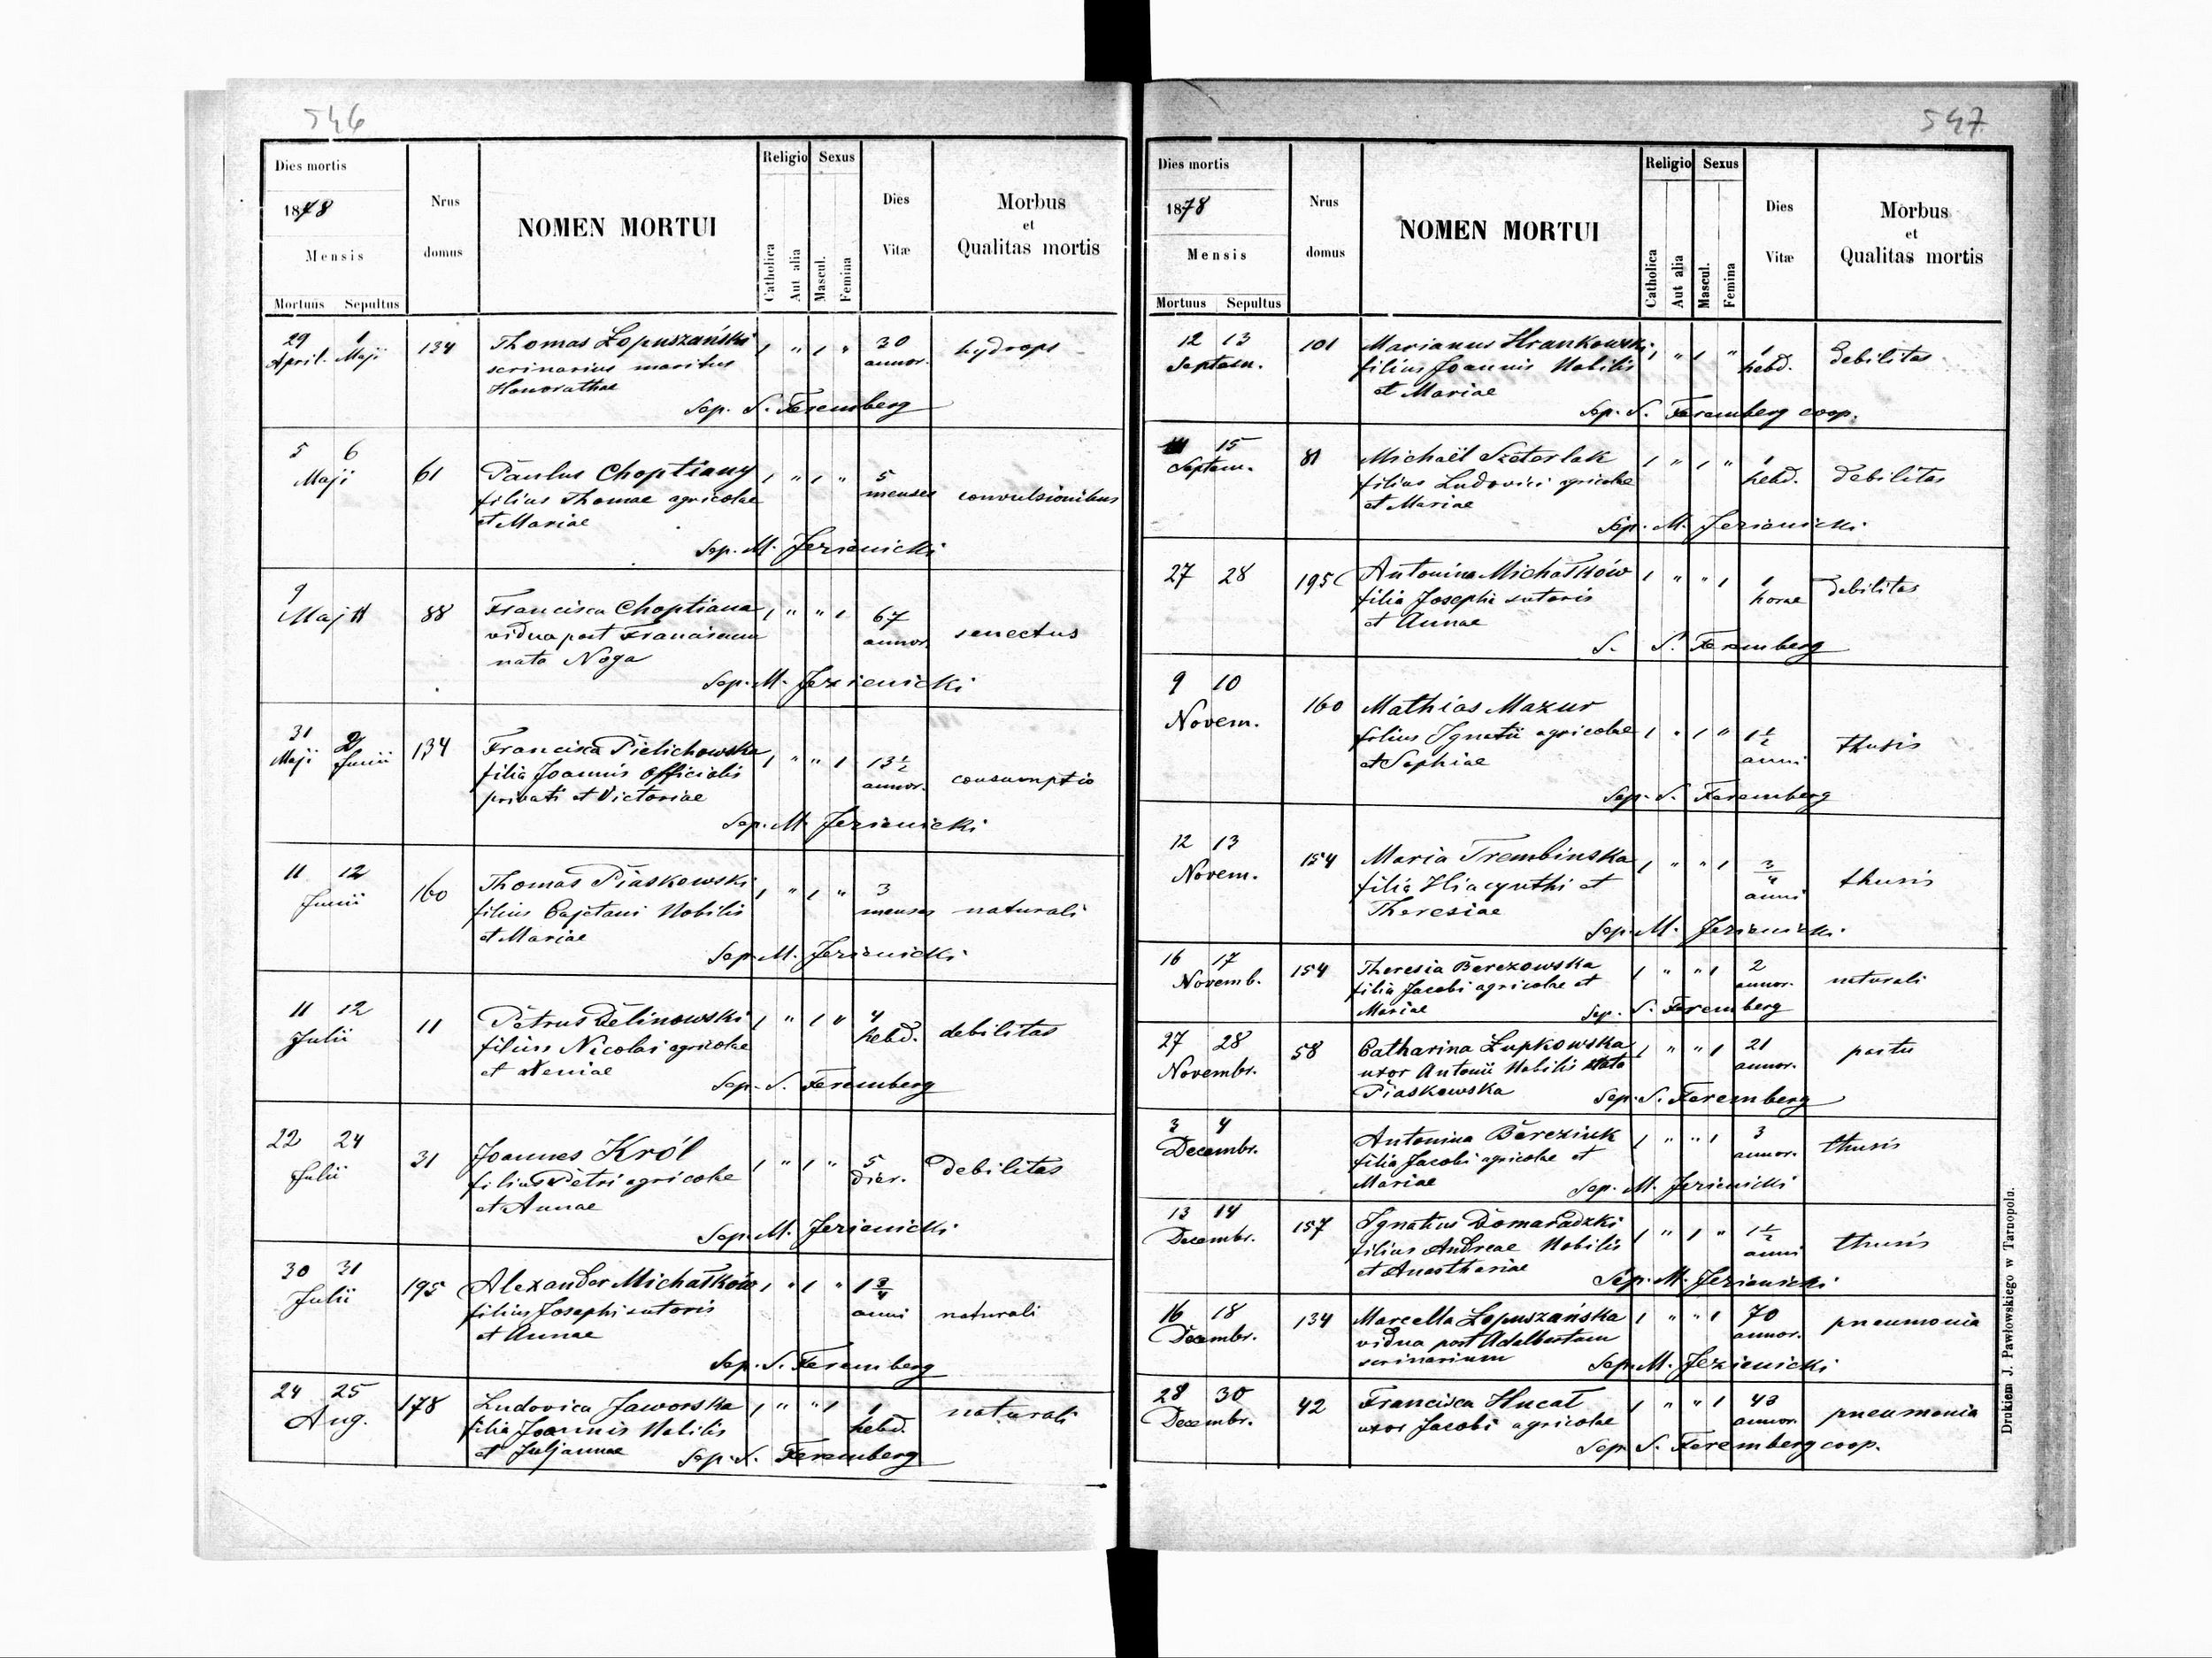 546
Dies mortis
1878
Mensis
Mortuus Sepultus
Nrus
domus
NOMEN MORTUI
Religio
Catholica
Aut alia
Sexus
Mascul.
Femina
Dies
Vitæ
Morbus
et
Qualitas mortis
29 1
April. Maji 134 Thomas Łopuszański 1 " 1 " 30 hydrops
scrinarius maritus annor.
Honorathae
Sep. S. Feremberg
5 6
Maji 61 Paulus Choptiany 1 " 1 " 5
filius Thomae agricolae menses convulsionibus
et Mariae
Sep. M. Jezienicki
9
Maj 11 88 Francisca Choptiana 1 " " 1 67
vidua post Franciscum annor. senectus
nata Noga
Sep. M. Jezienicki
31 2
Maji Junii 134 Francisca Pielichowska 1 " " 1 13 1/2
filia Joannis Officialis annor. consumptio
privati et Victoriae
Sep. M. Jezienicki
11 12
Junii 160 Thomas Piaskowski 1 " 1 " 3
filius Cajetani Nobilis menses naturali
et Mariae
Sep. M. Jezienicki
11 12
Julii 11 Petrus Delinowski 1 " 1 " 4
filius Nicolai agricolae hebd. debilitas
et Xeniae
Sep. S. Feremberg
22 24
Julii 31 Joannes Król 1 " 1 " 5
filius Petri agricolae dier. debilitas
et Annae
Sep. M. Jezienicki
30 31
Julii 195 Alexander Michałków 1 " 1 " 1 3/4
filius Josephi sutoris anni naturali
et Annae
Sep. S. Feremberg
24 25
Aug. 178 Ludovica Jaworska 1 " " 1 1 naturali
filia Joannis Nobilis hebd.
et Juljannae
Sep. S. Feremberg
547
Dies mortis
1878
Mensis
Mortuus Sepultus
Nrus
domus
NOMEN MORTUI
Religio
Catholica
Aut alia
Sexus
Mascul.
Femina
Dies
Vitæ
Morbus
et
Qualitas mortis
12 13
Septem. 101 Marianus Hrankowski 1 " 1 " 1 debilitas
filius Joannis Nobilis hebd.
et Mariae
Sep. S. Feremberg coop.
15
Septem. 81 Michaël Szeterlak 1 " 1 " 1
filius Ludovici agricolae hebd. debilitas
et Mariae
Sep. M. Jezienicki
27 28 195 Antonina Michałków 1 " " 1 1 debilitas
filia Josephi sutoris horae
et Annae
S. S. Feremberg
9 10
Novem. 160 Mathias Mazur
filius Ignatii agricolae 1 " 1 " 1 1/2 thusis
et Sophiae anni
Sep. S. Feremberg
12 13
Novem. 154 Maria Trembinska 1 " " 1 3/4
filia Hiacynthi et anni thusis
Theresiae
Sep. M. Jezienicki
16 17
Novemb. 154 Theresia Berezowska 1 " " 1 2
filia Jacobi agricolae et annor. naturali
Mariae
Sep. S. Feremberg
27 28
Novembr. 58 Catharina Łupkowska 1 " " 1 21 partu
uxor Antonii Nobilis nata annor.
Piaskowska
Sep. S. Feremberg
3 4
Decembr. Antonina Bereziuk 1 " " 1 3
filia Jacobi agricolae et annor. thusis
Mariae
Sep. M. Jezienicki
13 14
Decembr. 157 Ignatius Domaradzki 1 " 1 " 1 1/2
filius Andreae Nobilis anni thusis
et Anasthasiae
Sep. M. Jezienicki
16 18
Decembr. 134 Marcella Łopuszańska 1 " " 1 70
vidua post Adalbertum annor. pneumonia
scrinarium
Sep. M. Jezienicki
28 30
Decembr. 42 Francisca Hucał 1 " " 1 43
uxor Jacobi agricolae annor. pneumonia
Sep. S. Feremberg coop.
Drukiem J. Pawłowskiego w Tarnopolu.